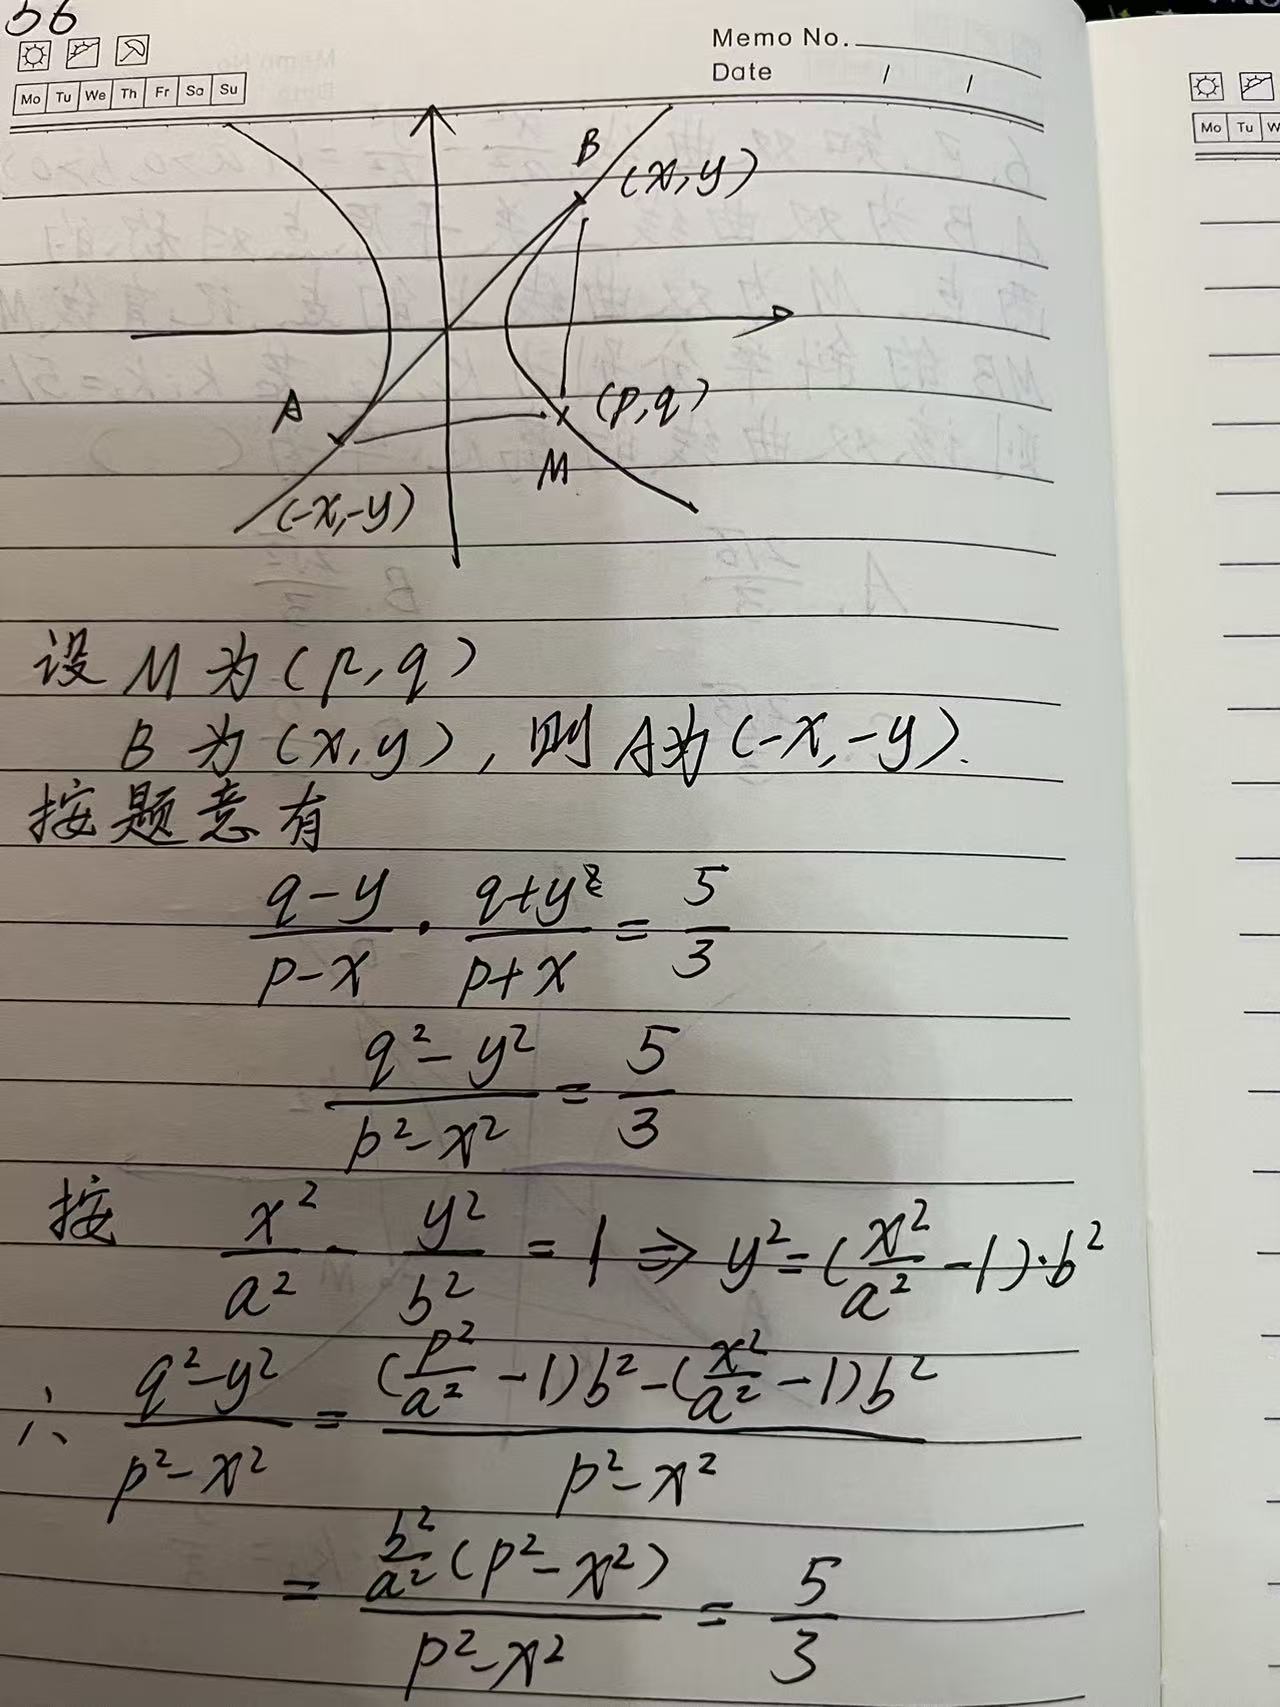 56
Memo No.
Date / /
Mo Tu We Th Fr Sa Su
Mo Tu W
B
(x,y)
A
(p,q)
M
(-x,-y)
设 M 为 (p,q)
B 为 (x,y), 则 A为 (-x,-y).
按题意有
\frac{q-y}{p-x} · \frac{q+y}{p+x} = \frac{5}{3}
\frac{q²-y²}{p²-x²} = \frac{5}{3}
按 \frac{x²}{a²} - \frac{y²}{b²} = 1 ⇒ y² = (\frac{x²}{a²} - 1)·b²
∴ \frac{q²-y²}{p²-x²} = \frac{(\frac{p²}{a²} - 1)b² - (\frac{x²}{a²} - 1)b²}{p²-x²}
= \frac{\frac{b²}{a²}(p²-x²)}{p²-x²} = \frac{5}{3}